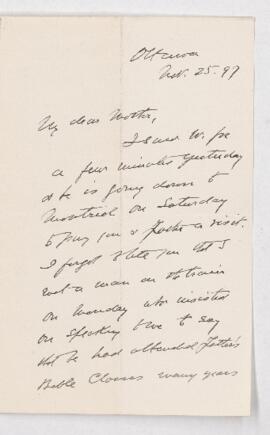 Ottawa
Nov. 25. 97
My dear Mother,
I saw W.
a few minutes yesterday
& he is going down to
Montreal on Saturday
to pay you & Father a visit.
I forgot to tell you that I
met a man on the train
on Monday who insisted
on speaking to me to say
that he had attended Father's
Bible Classes many years